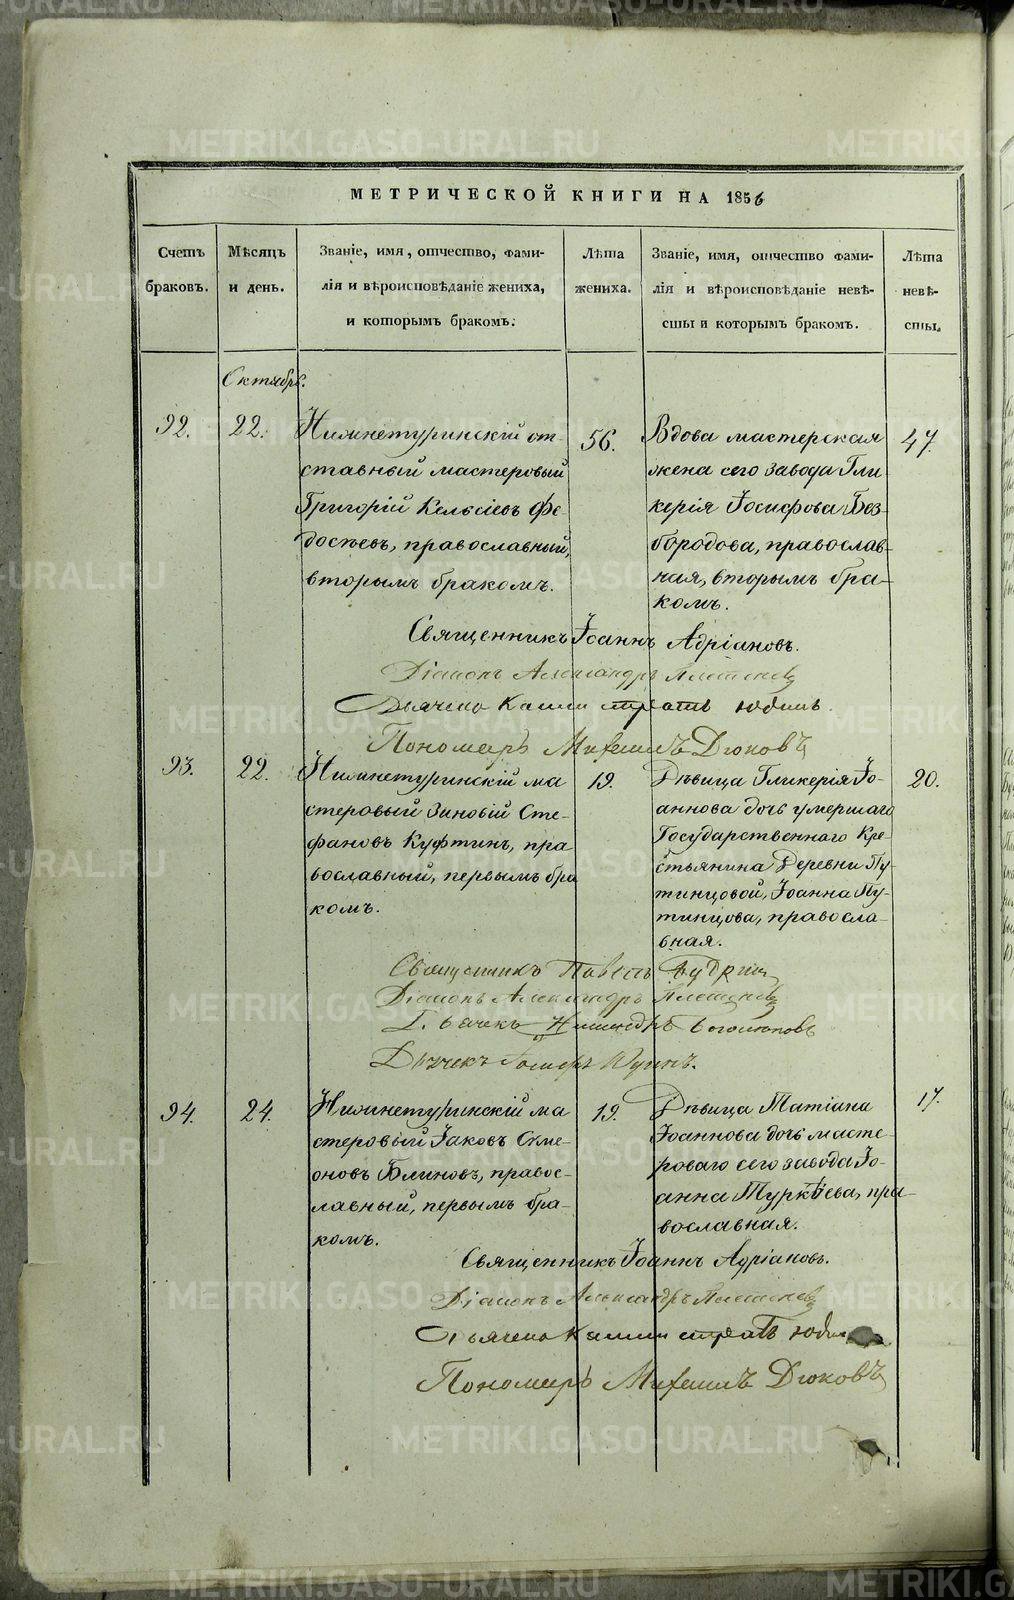 МЕТРИЧЕСКОЙ КНИГИ НА 1856
Счетъ браковъ.
Мѣсяцъ и день.
Званіе, имя, отчество, фамилія и вѣроисповѣданіе жениха, и которымъ бракомъ.
Лѣта жениха.
Званіе, имя, отчество фамилія и вѣроисповѣданіе невѣсты и которымъ бракомъ.
Лѣта невѣсты.
Октябрь.
92.
22.
Нижнетуринскій от-
ставный мастеровый
Григорій Кельсіевъ Фе-
досѣевъ, православный,
вторымъ бракомъ.
56.
Вдова мастерская
жена сего завода Гли-
керія Іосифова Без-
бородова, православ-
ная, вторымъ бра-
комъ.
47.
Священникъ Іоаннъ Адріановъ.
Діаконъ Александръ Плетеневъ
Дьячекъ Каллистратъ Юдинъ.
Пономарь Михаилъ Дюковъ
93.
22.
Нижнетуринскій ма
стеровый Зиновій Сте-
фановъ Куфтинъ, пра
вославный, первымъ бра
комъ.
19.
Дѣвица Гликерія Іо-
аннова дочь умершаго
Государственнаго Кре-
стьянина Деревни Пу-
тинцовой, Іоанна Пу-
тинцова, правосла-
вная.
20.
Священникъ Павелъ
Діаконъ Александръ Плетеневъ
Дьячекъ
Дьячекъ Іосифъ
94.
24.
Нижнетуринскій ма
стеровый Іаковъ Симе-
оновъ Блиновъ, правос-
лавный, первымъ бра-
комъ.
19.
Дѣвица Татіана
Іоаннова дочь масте-
роваго сего завода Іо-
анна Туркѣева, пра-
вославная.
17.
Священникъ Іоаннъ Адріановъ.
Діаконъ Александръ Плетеневъ
Дьячекъ Каллистратъ
Пономарь Михаилъ Дюковъ
METRIKI.GASO-URAL.RU